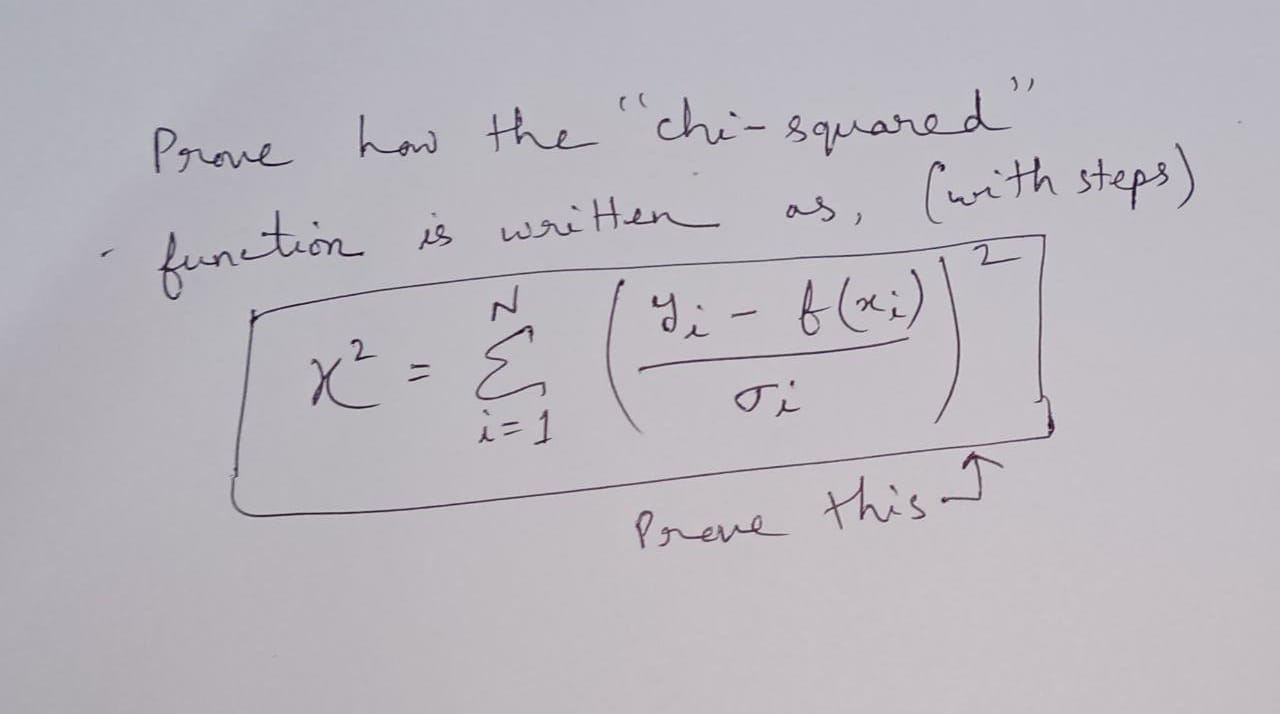 Prove how the "chi-squared"
function is written as, (with steps)
χ² = Σ_{i=1}^{N} ((y_i - f(x_i))/σ_i)²
Prove this ↑